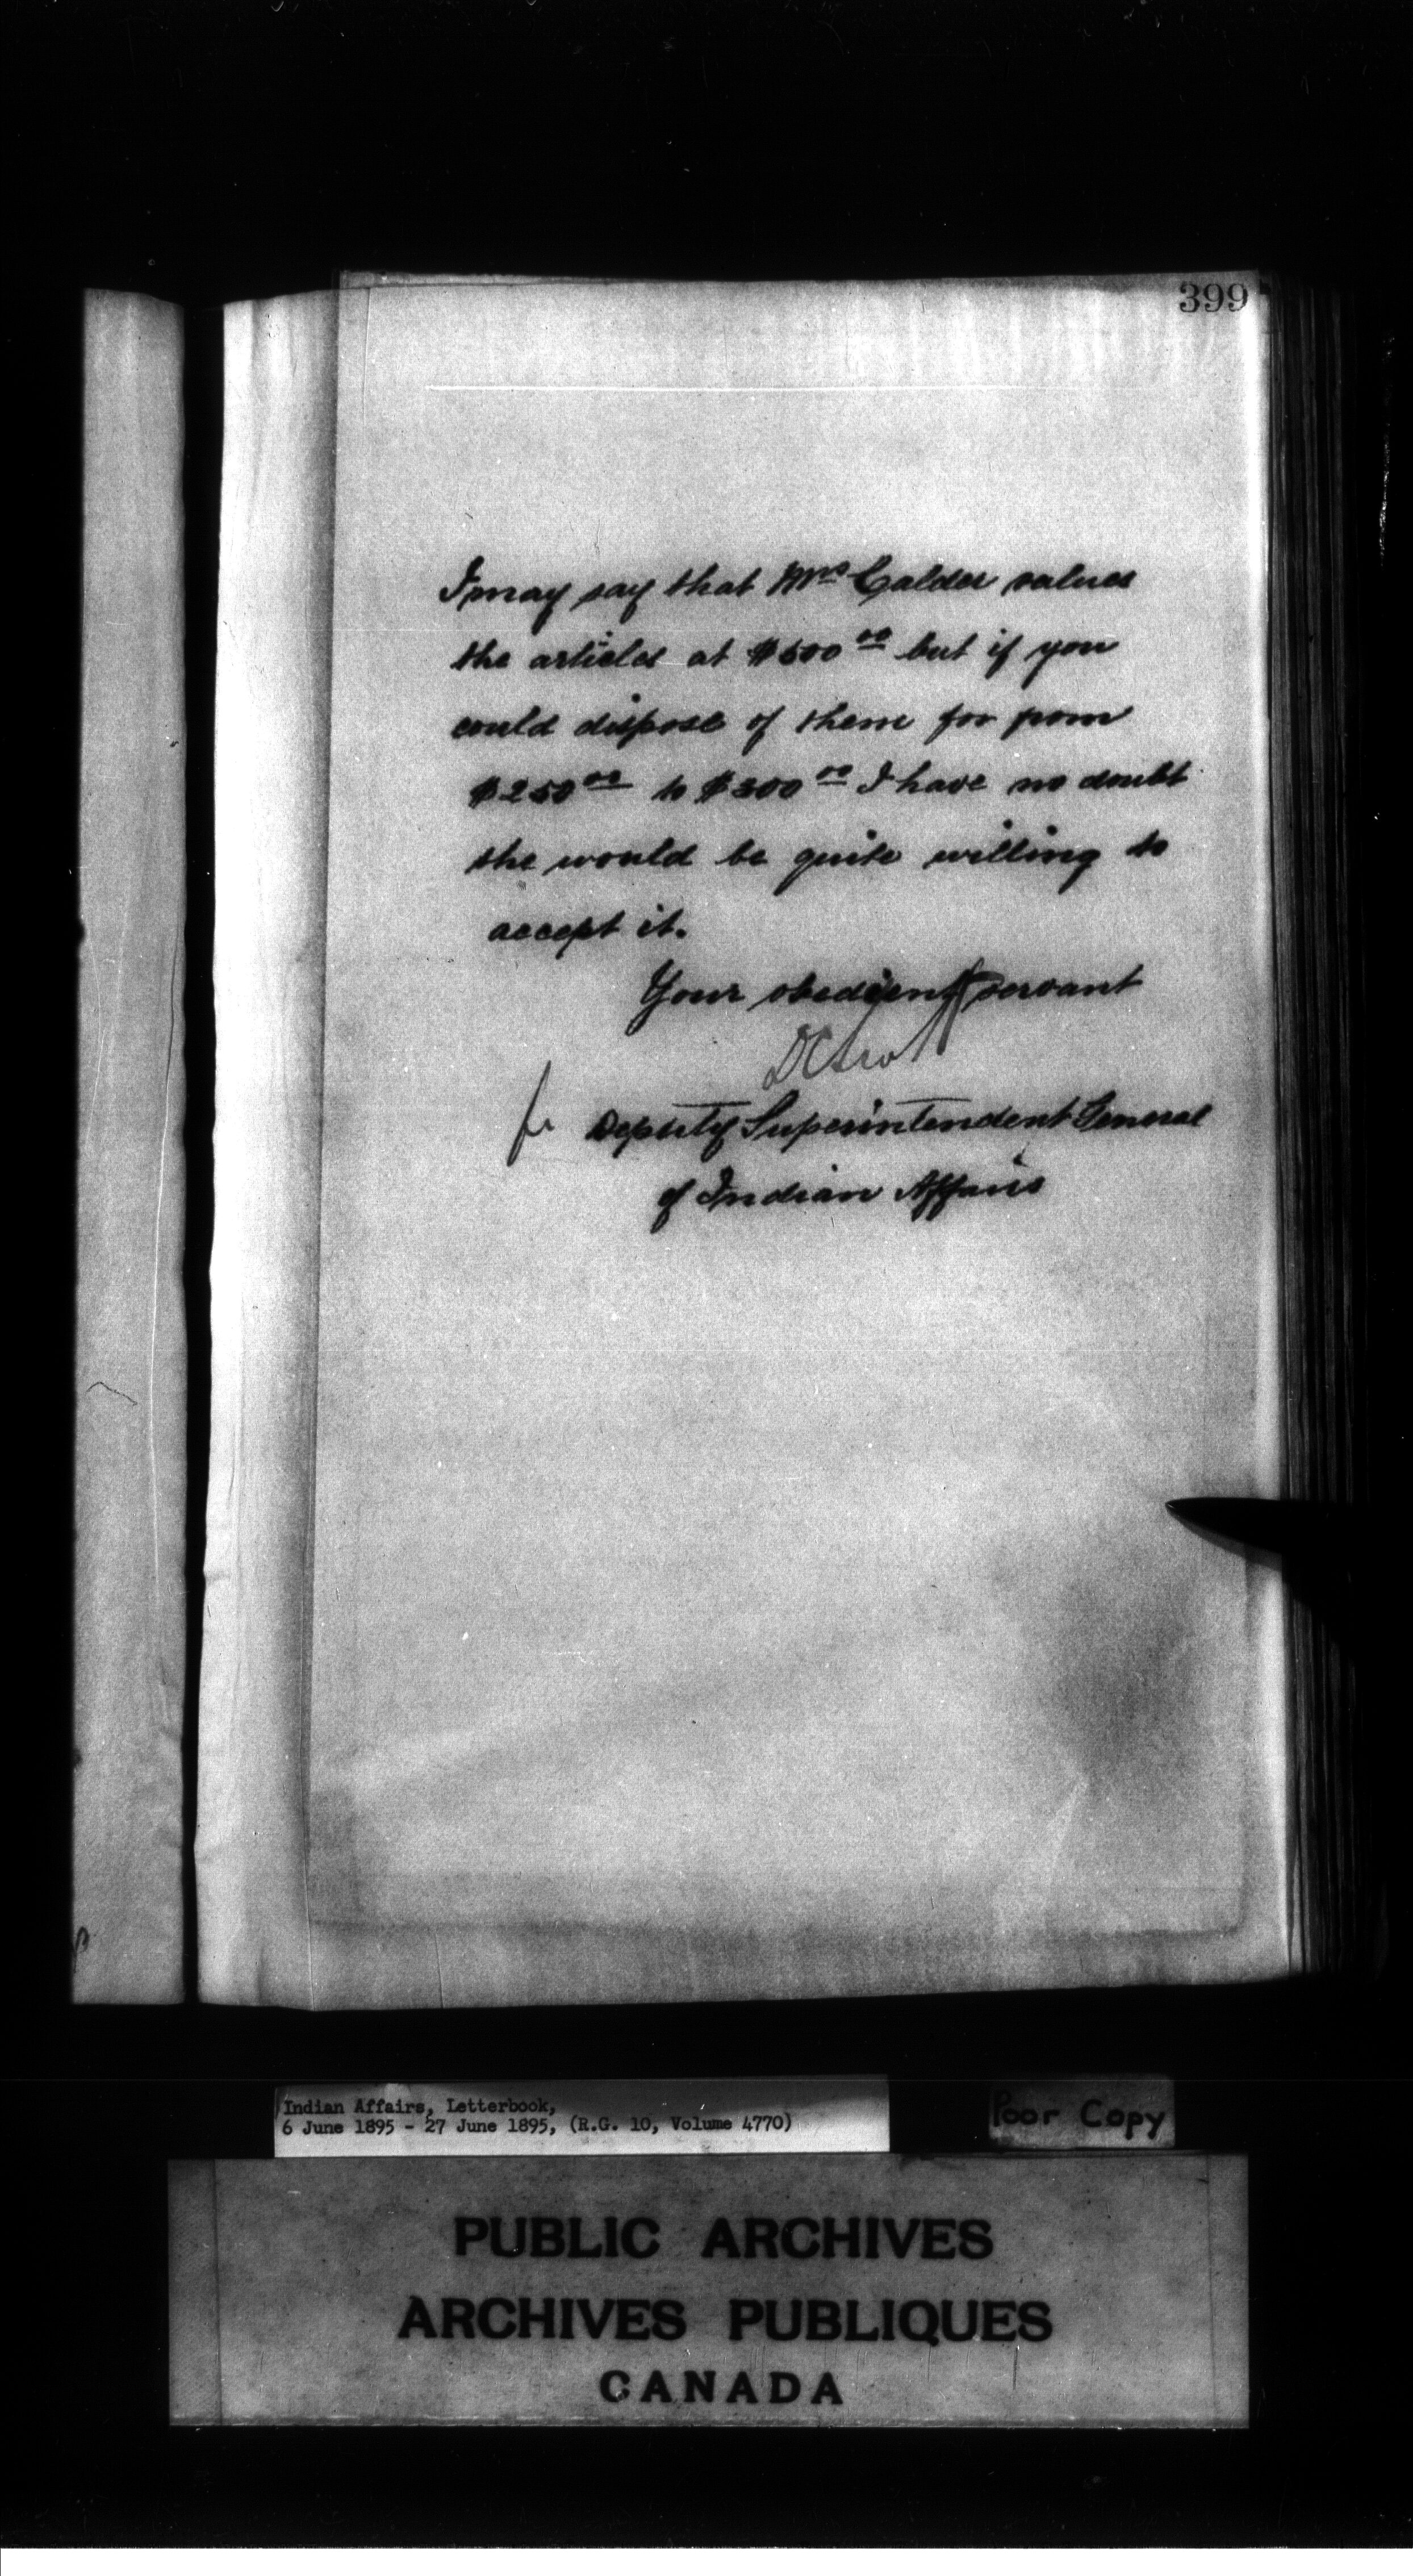 399
I may say that Mrs Calder values
the articles at $500 00 but if you
could dispose of them for from
$250 00 to $300 00 I have no doubt
she would be quite willing to
accept it.
Your obedient servant
D C Scott
for Deputy Superintendent General
of Indian Affairs
Indian Affairs, Letterbook,
6 June 1895 - 27 June 1895, (R.G. 10, Volume 4770)
Poor Copy
PUBLIC ARCHIVES
ARCHIVES PUBLIQUES
CANADA